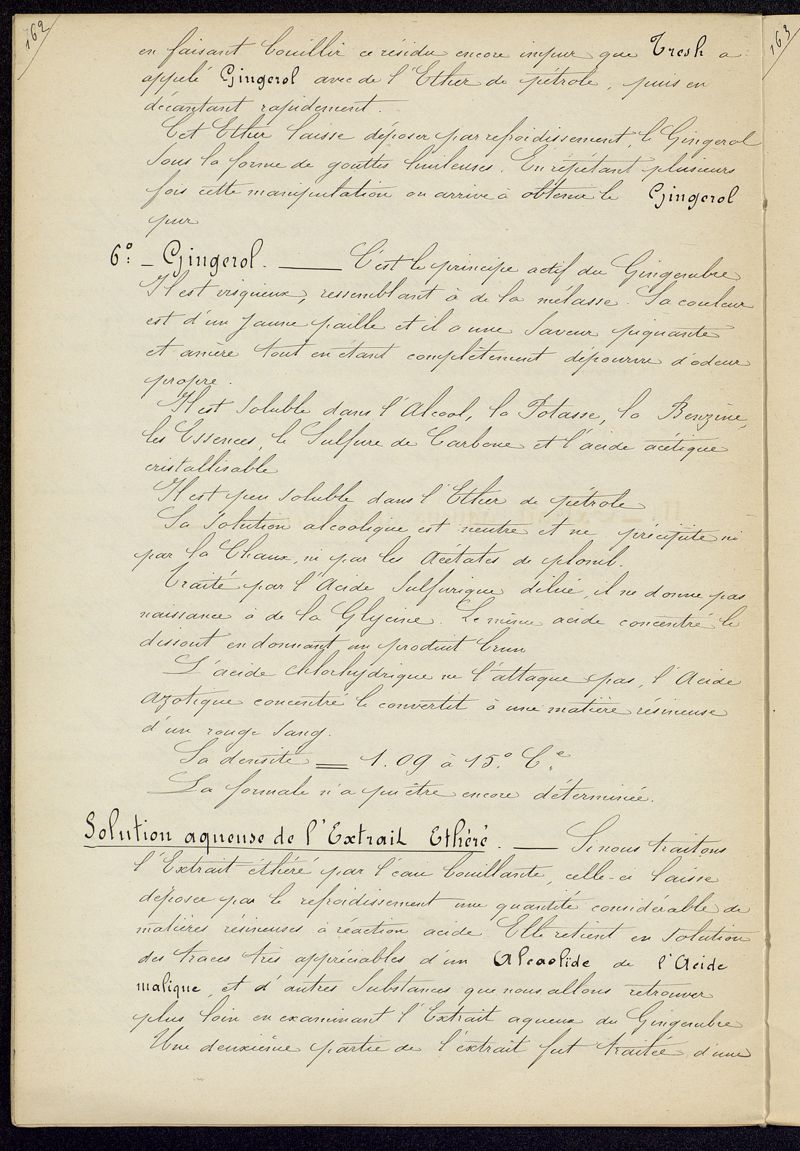 162
163
en faisant bouillir ce résidu encore impur que Tresh a
appelé Gingerol avec de l'Ether de pétrole, puis en
décantant rapidement.
Cet Ether laisse déposer par refroidissement, le Gingerol
sous la forme de gouttes huileuses. En répétant plusieurs
fois cette manipulation on arrive à obtenir le Gingerol
pur
6º: - Gingerol. — C'est le principe actif du Gingembre
Il est visqueux, ressemblant à de la mélasse. Sa couleur
est d'un jaune paille et il a une saveur piquante
et amère tout en étant complètement dépourvu d'odeur
propre.
Il est soluble dans l'Alcool, la Potasse, la Benzine,
les Essences, le Sulfure de Carbone et l'acide acétique
cristallisable
Il est peu soluble dans l'Ether de pétrole
Sa solution alcoolique est neutre et ne précipite ni
par la Chaux, ni par les Acétates de plomb.
Traité par l'Acide Sulfurique dilué, il ne donne pas
naissance à de la Glycine. Le même acide concentré le
dissout en donnant un produit brun
L'acide chlorhydrique ne l'attaque pas, l'Acide
azotique concentré le convertit à une matière résineuse
d'un rouge sang.
Sa densité = 1.09 à 15º Cᵉ.
La formule n'a pu être encore déterminée.
Solution aqueuse de l'Extrait Ethéré. — Si nous traitons
l'Extrait éthéré par l'eau bouillante, celle-ci laisse
déposer par le refroidissement une quantité considérable de
matières résineuses à réaction acide. Elle retient en solution
des traces très appréciables d'un Alcaoliïde de l'Acide
malique, et d'autres substances que nous allons retrouver
plus loin en examinant l'Extrait aqueux du Gingembre
Une deuxième partie de l'extrait fut traitée d'une